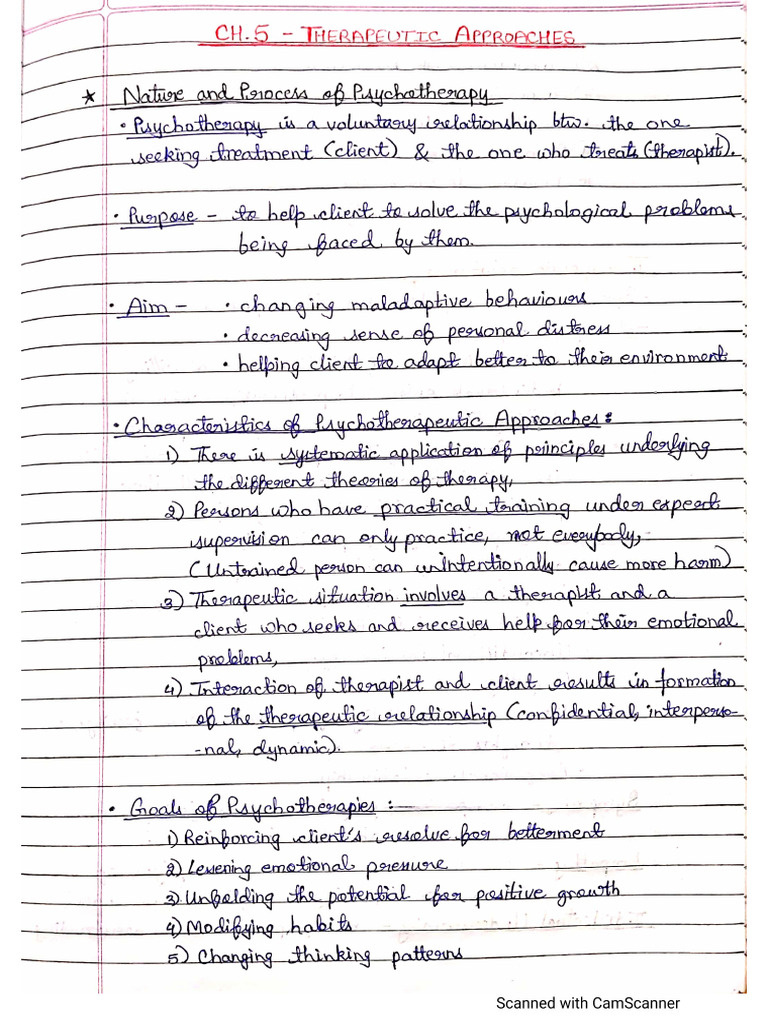 CH.5 - THERAPEUTIC APPROACHES
* Nature and Process of Psychotherapy
• Psychotherapy is a voluntary relationship btw. the one
seeking treatment (client) & the one who treats (therapist).
• Purpose - to help client to solve the psychological problems
being faced by them.
• Aim - • changing maladaptive behaviours
• decreasing sense of personal distress
• helping client to adapt better to their environment
• Characteristics of Psychotherapeutic Approaches:
1) There is systematic application of principles underlying
the different theories of therapy,
2) Persons who have practical training under expert
supervision can only practice, not everybody,
(Untrained person can unintentionally cause more harm)
3) Therapeutic situation involves a therapist and a
client who seeks and receives help for their emotional
problems,
4) Interaction of therapist and client results in formation
of the therapeutic relationship (confidential, interperso-
-nal, dynamic).
• Goals of Psychotherapies :-
1) Reinforcing client's resolve for betterment
2) Lessening emotional pressure
3) Unfolding the potential for positive growth
4) Modifying habits
5) Changing thinking patterns
Scanned with CamScanner